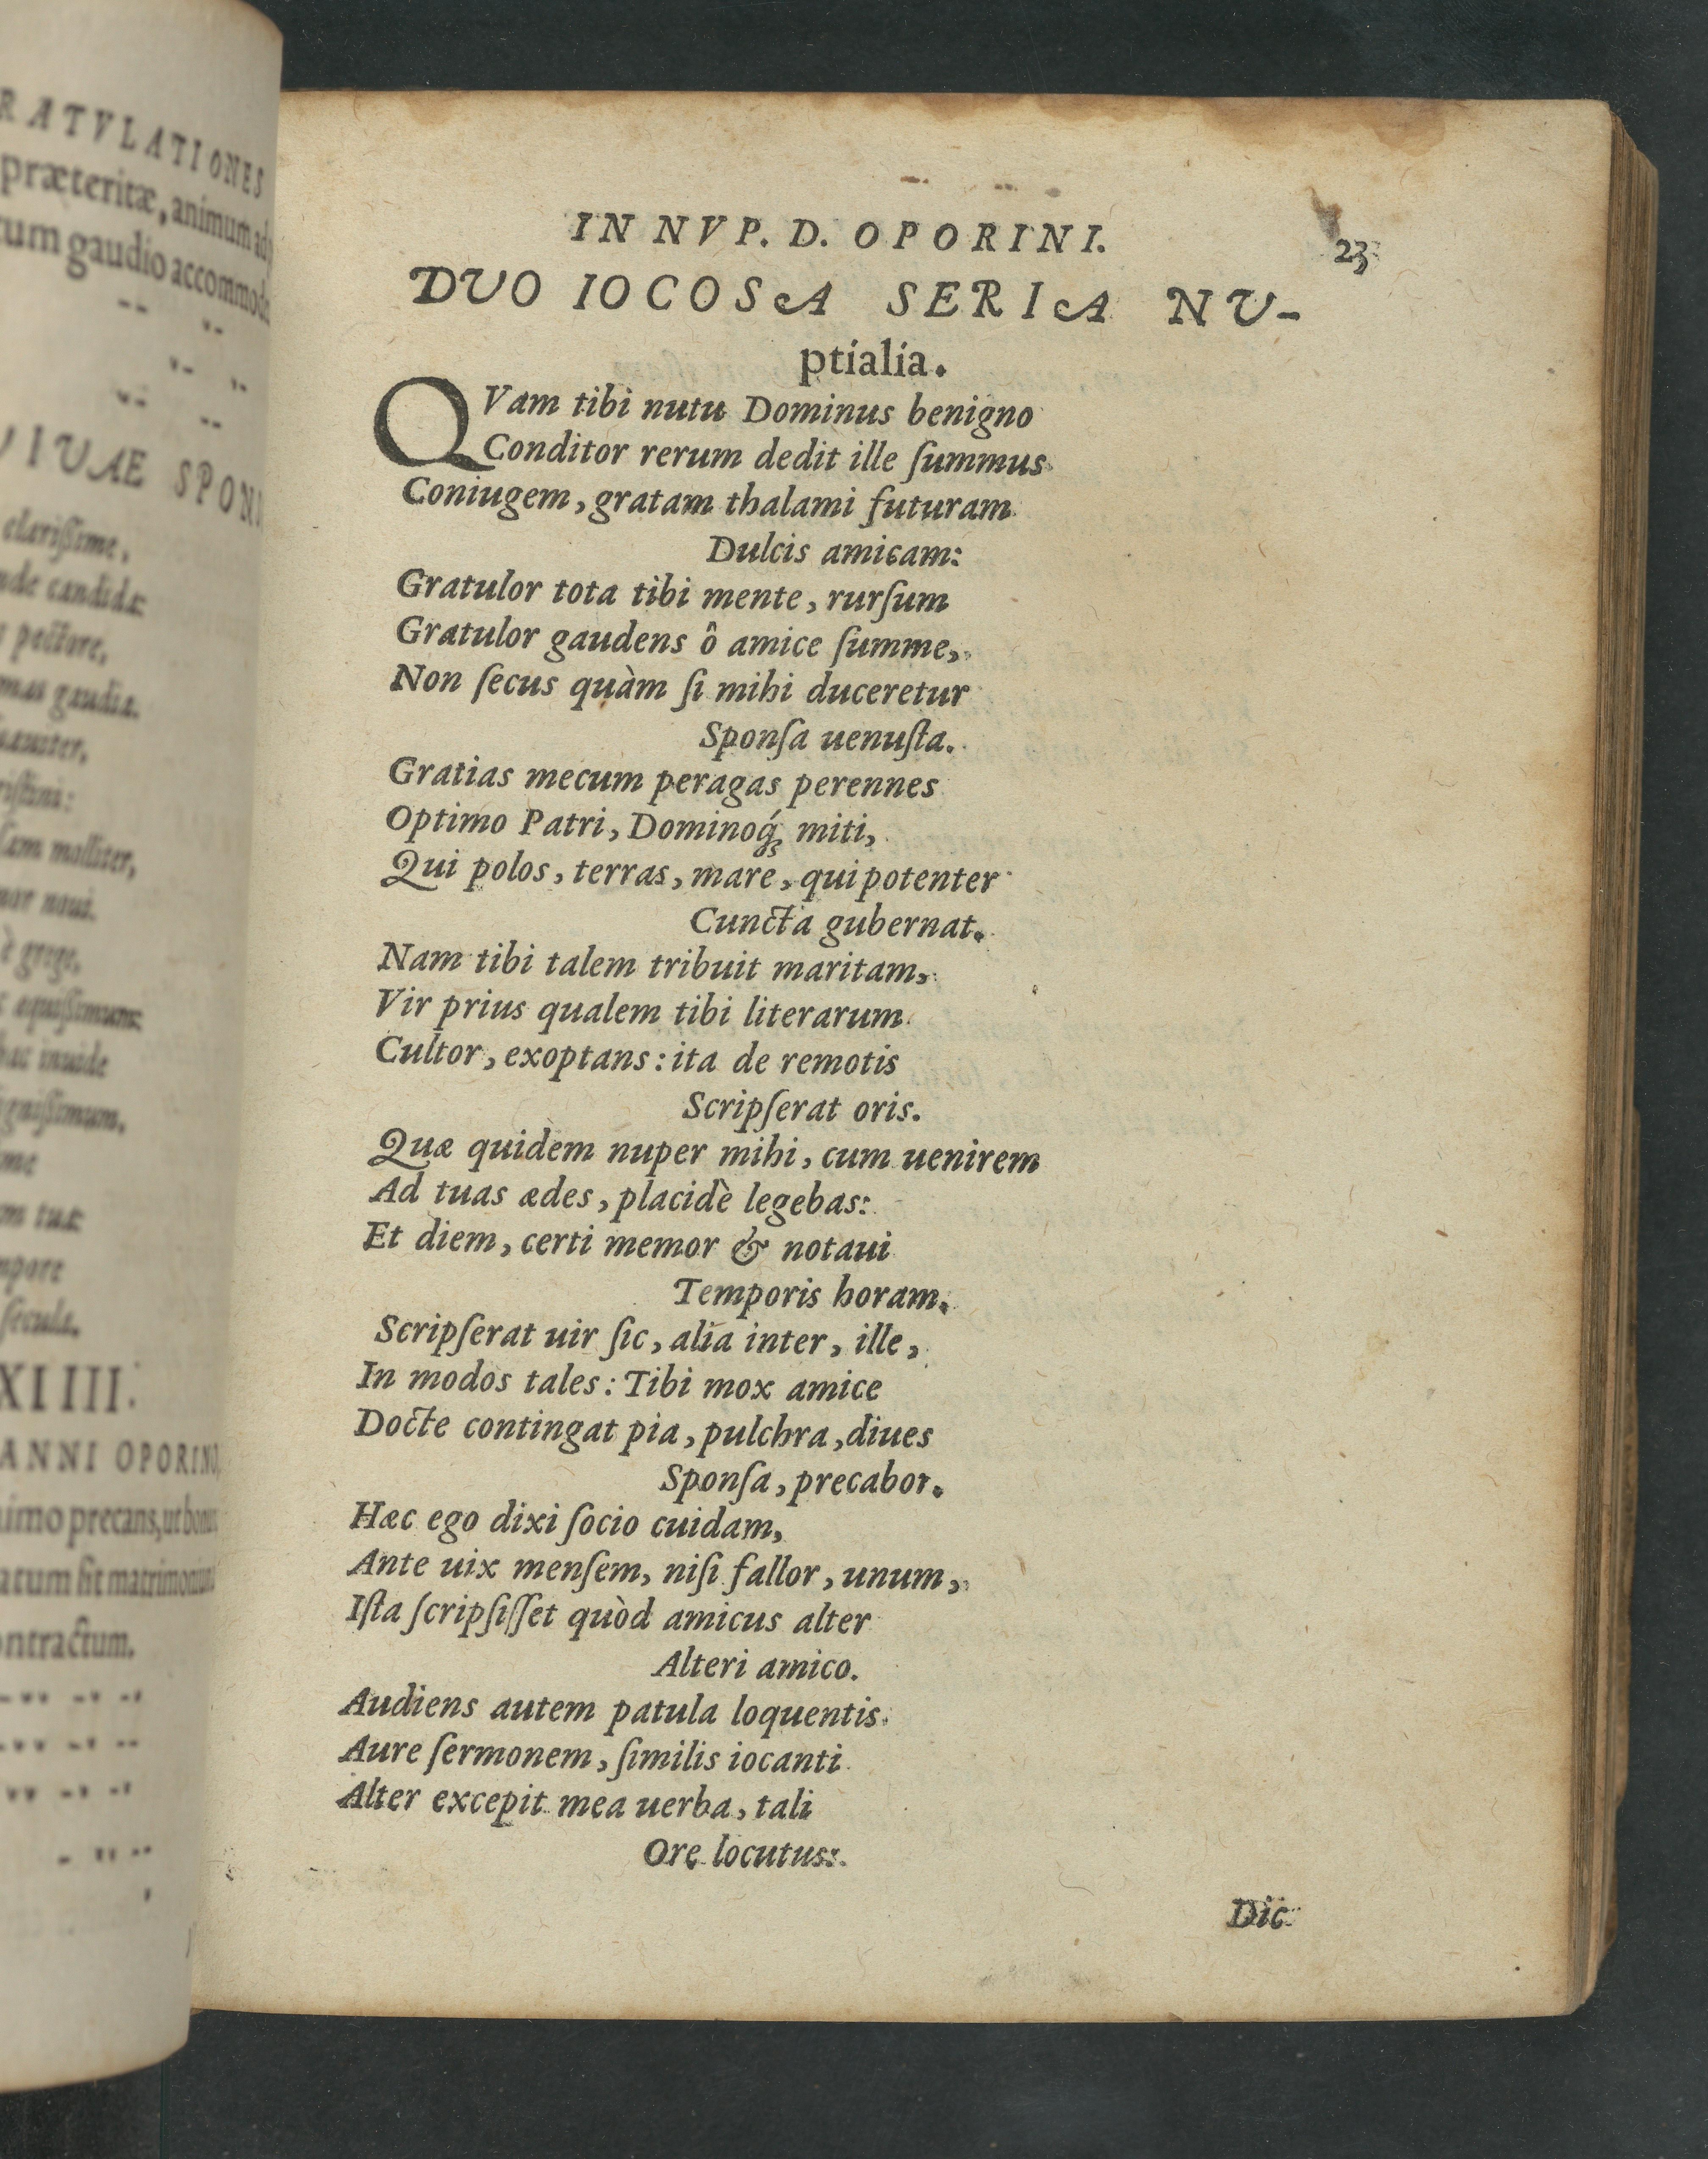 RATVLATIONES
præteritæ, animum ad
tum gaudio accommoda
VIVAE SPON
clarißime,
nde candidæ
pectore,
gaudia.
molliter,
noui.
è grege,
inuide
tuæ
XIIII.
ANNI OPORINO,
nimo precans, ut bonus
atum sit matrimonium
ontractum.
IN NVP. D. OPORINI.
23
DVO IOCOSA SERIA NV-
ptialia.
QVam tibi nutu Dominus benigno
Conditor rerum dedit ille ſummus
Coniugem, gratam thalami futuram
Dulcis amicam:
Gratulor tota tibi mente, rurſum
Gratulor gaudens ô amice ſumme,
Non ſecus quàm ſi mihi duceretur
Sponſa uenuſta.
Gratias mecum peragas perennes
Optimo Patri, Dominoq́ꝫ miti,
Qui polos, terras, mare, qui potenter
Cuncta gubernat.
Nam tibi talem tribuit maritam,
Vir prius qualem tibi literarum
Cultor, exoptans: ita de remotis
Scripſerat oris.
Quæ quidem nuper mihi, cum uenirem
Ad tuas ædes, placidè legebas:
Et diem, certi memor & notaui
Temporis horam.
Scripſerat uir ſic, alia inter, ille,
In modos tales: Tibi mox amice
Docte contingat pia, pulchra, diues
Sponſa, precabor.
Hæc ego dixi ſocio cuidam,
Ante uix menſem, niſi fallor, unum,
Iſta ſcripſiſſet quòd amicus alter
Alteri amico.
Audiens autem patula loquentis
Aure ſermonem, ſimilis iocanti
Alter excepit mea uerba, tali
Ore locutus:
Dic